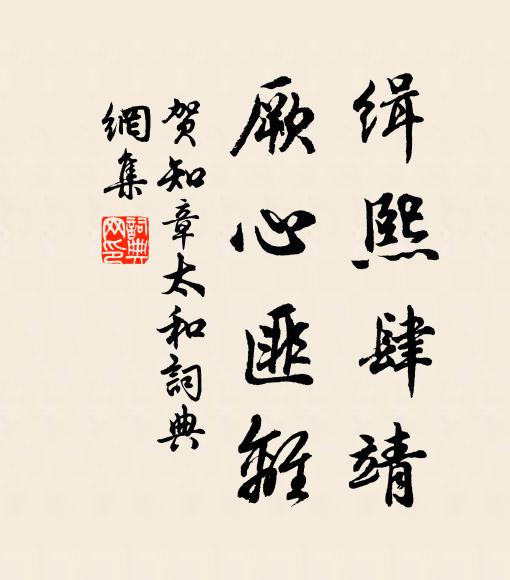 緝熙肆靖
厥心匪離
賀知章太和詞典
網集
詞典
网印